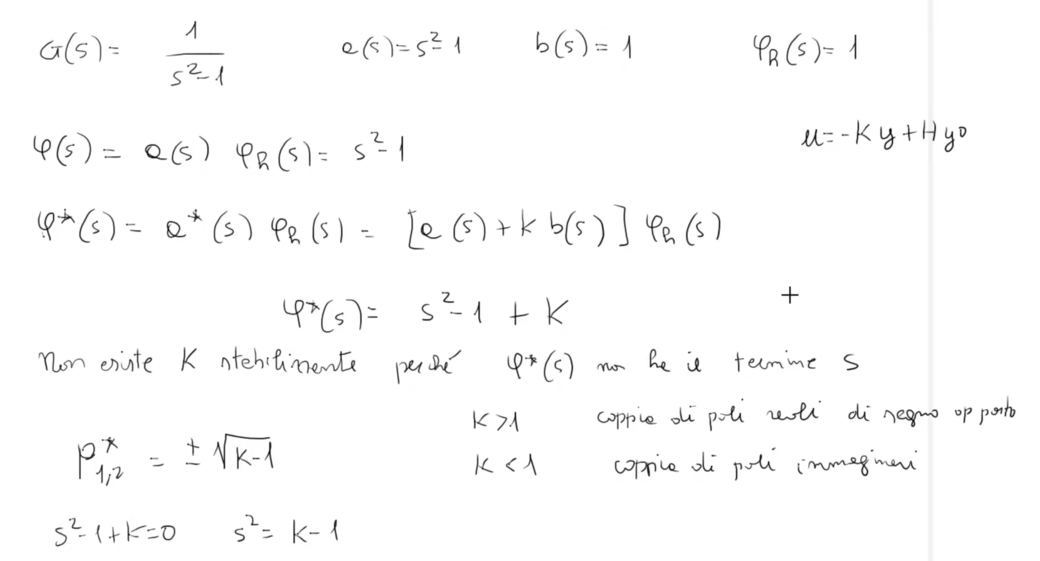 G(s)= 1/(s²-1) a(s)=s²-1 b(s)=1 φR(s)=1
u=-Ky+Hy⁰
φ(s)= a(s) φR(s)= s²-1
φ*(s)= a*(s) φR(s)= [a(s)+k b(s)] φR(s)
φ*(s)= s²-1+K
+
Non esiste K stabilizzante perché φ*(s) non ha il termine s
K>1 coppia di poli reali di segno opposto
P*1,2 = ±√K-1
K<1 coppia di poli immaginari
s²-1+K=0 s²= K-1